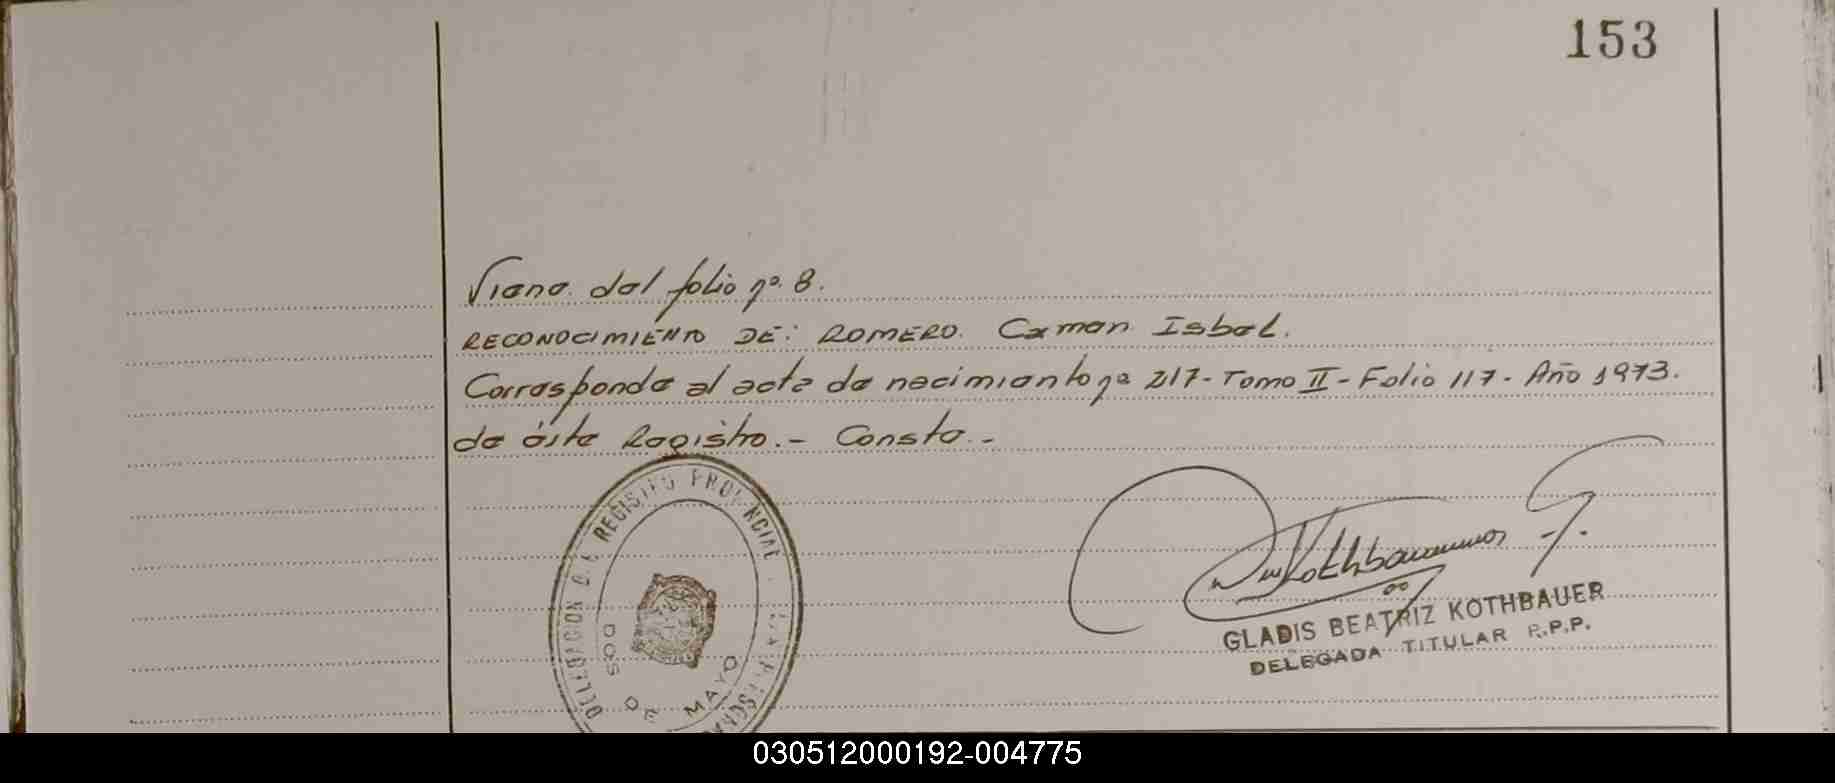 153
Viene del folio nº. 8.
RECONOCIMIENTO DE: ROMERO. Carmen Isbel.
Corresponde al acta de nacimiento nº 217 - Tomo II - Folio 117 - Año 1973.
de éste Registro. - Consta. -
DELEGACION DEL REGISTRO PROVINCIAL DE LAS PERSONAS
DOS DE MAYO
Kothbauer G.
GLADIS BEATRIZ KOTHBAUER
DELEGADA TITULAR R.P.P.
030512000192-004775